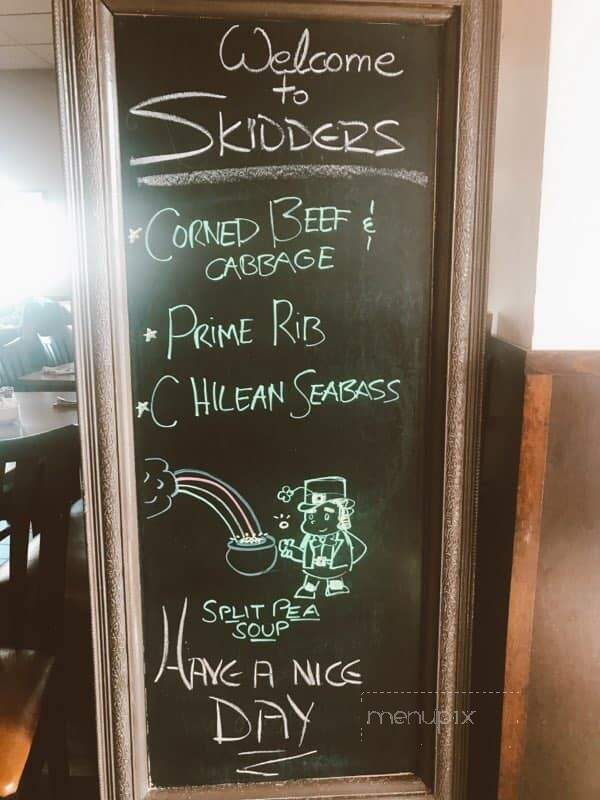 Welcome
to
SKIDDERS
* CORNED BEEF &
CABBAGE
* PRIME RIB
* CHILEAN SEABASS
SPLIT PEA
SOUP
HAVE A NICE
DAY
menupix